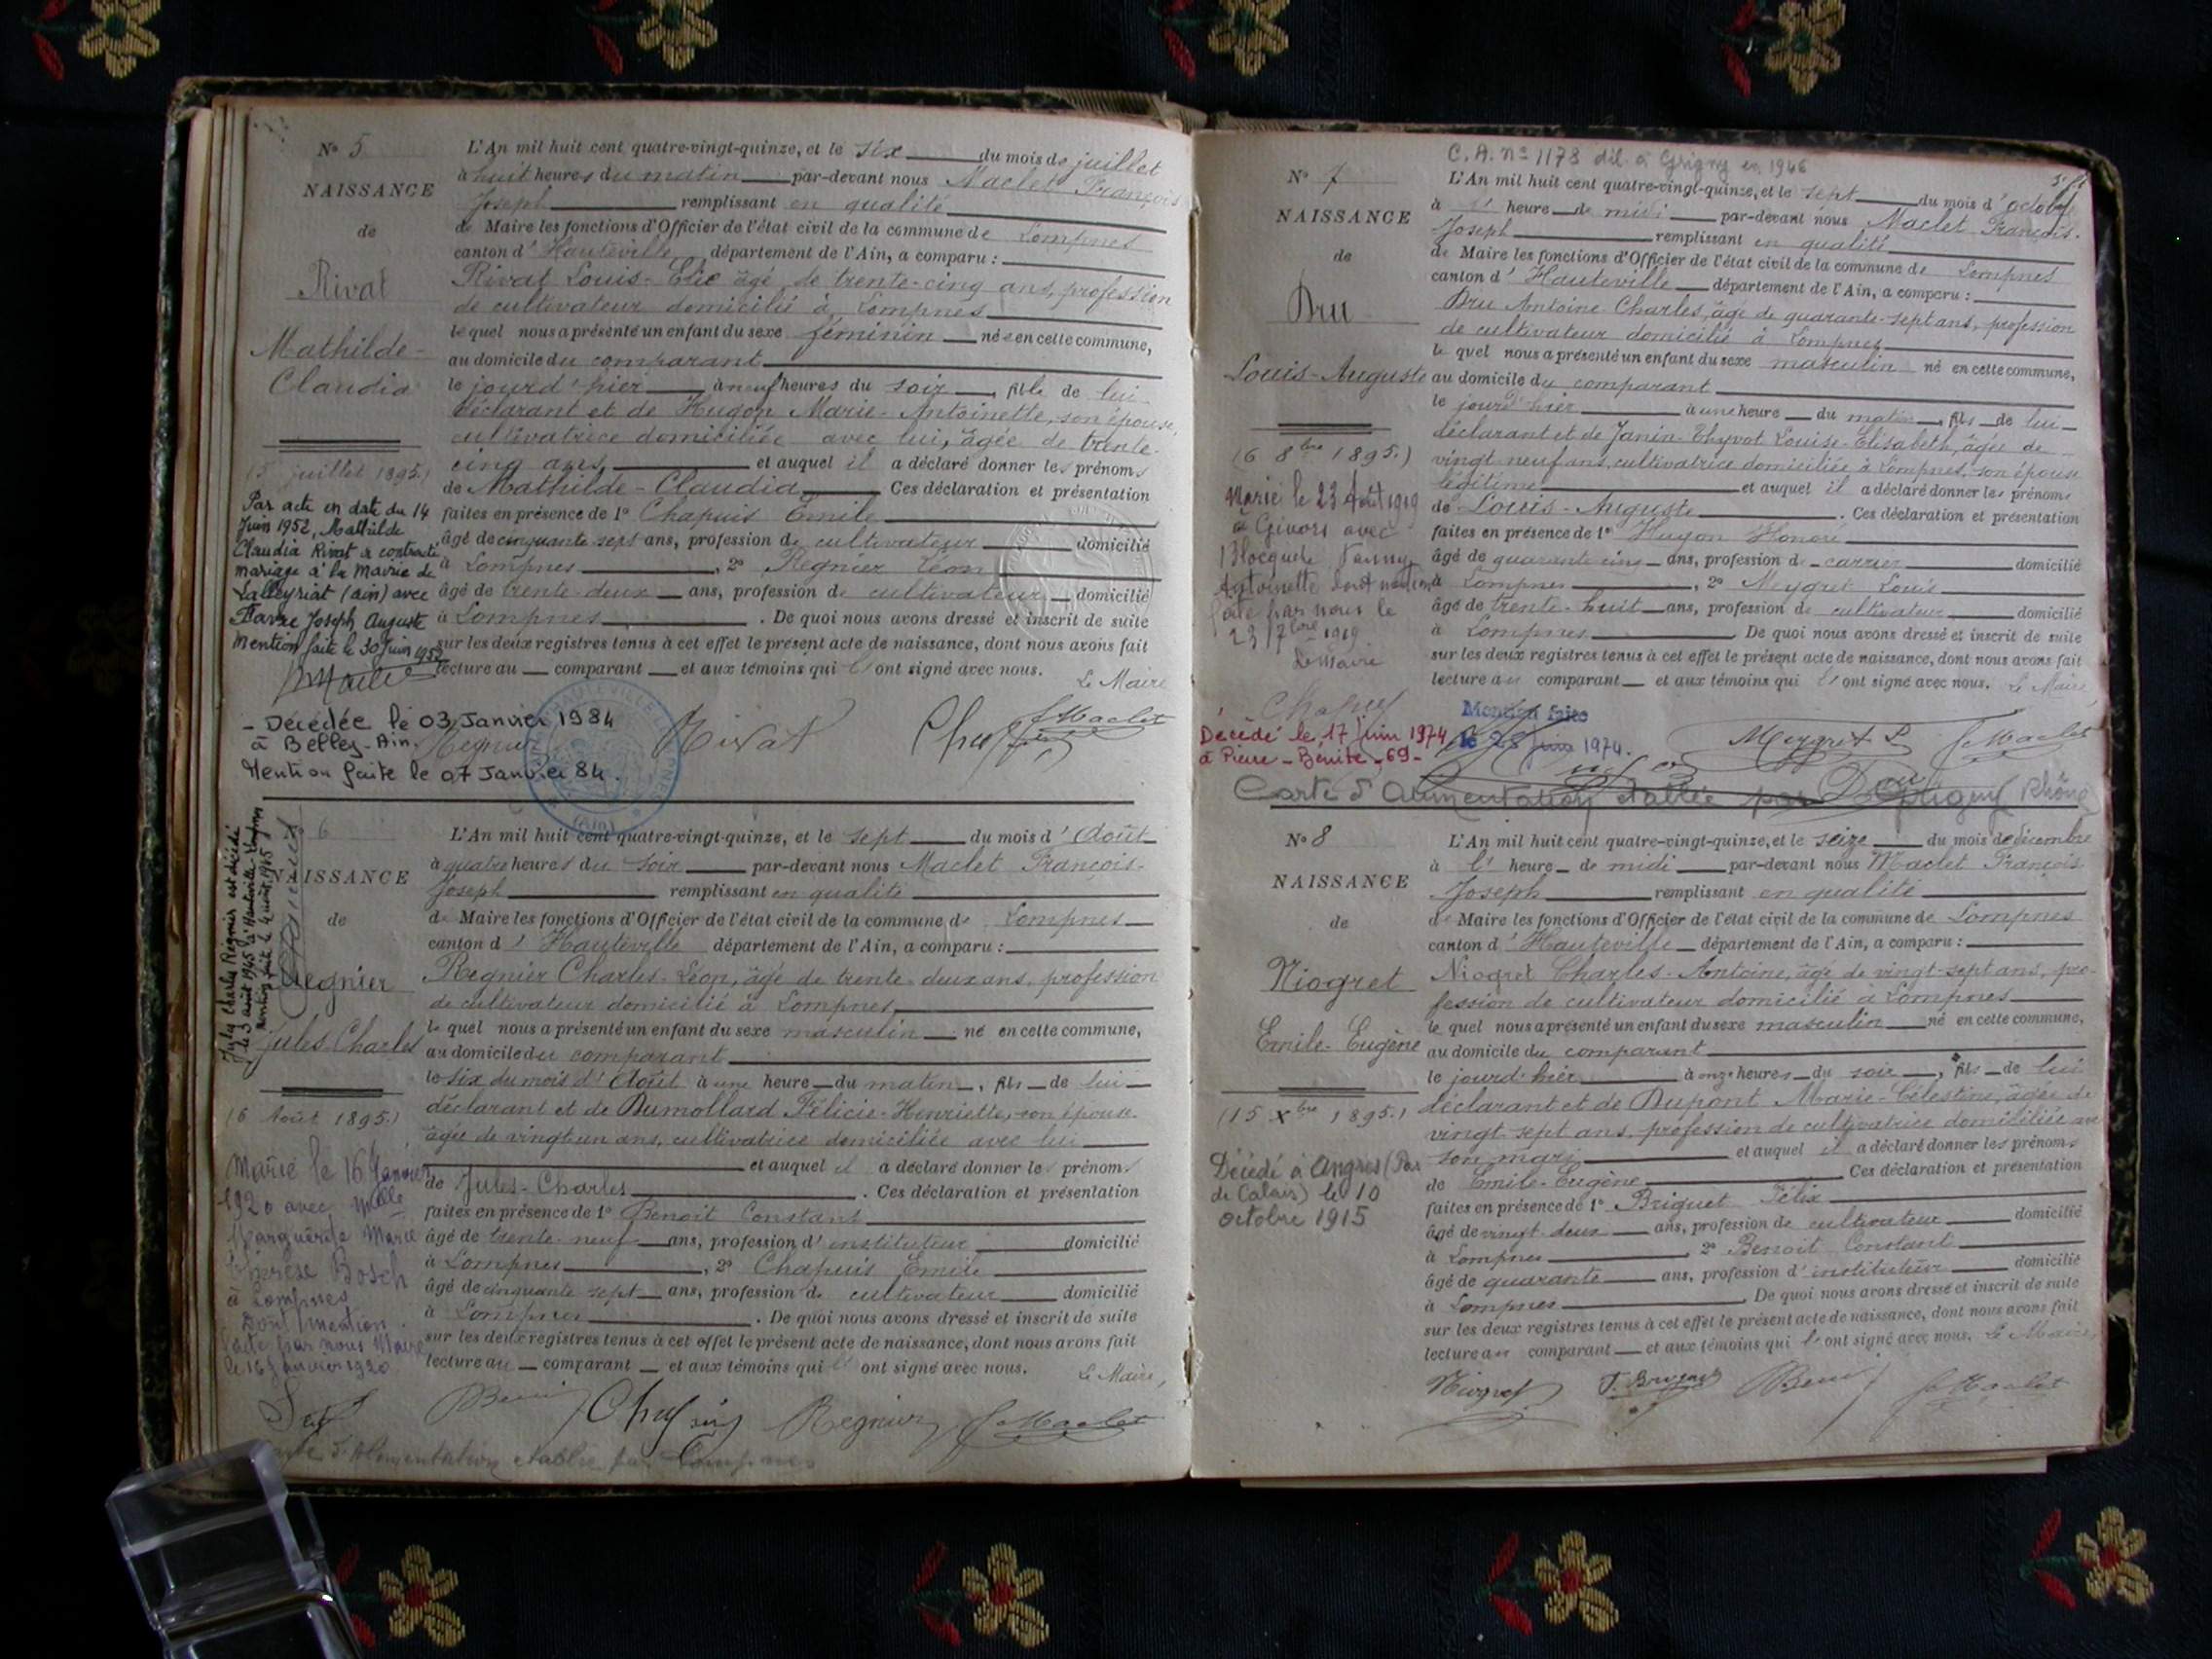 N° 5
NAISSANCE
de
Rivat
Mathilde-
Claudia
(5 juillet 1895.)
Par acte en date du 14
Juin 1952, Mathilde
Claudia Rivat a contracté
mariage à la Mairie de
Lalleyriat (Ain) avec
Joseph Auguste
Mention faite le 30 Juin 1952
L'An mil huit cent quatre-vingt-quinze, et le six du mois de juillet
à huit heures du matin par-devant nous Maclet François
Joseph remplissant en qualité
de Maire les fonctions d'Officier de l'état civil de la commune de Lompnes
canton d'Hauteville département de l'Ain, a comparu :
Rivat Louis-Elie âgé de trente-cinq ans, profession
de cultivateur domicilié à Lompnes
lequel nous a présenté un enfant du sexe féminin née en cette commune,
au domicile du comparant
le jourd'hier à neuf heures du soir, fille de lui
déclarant et de Hugon Marie-Antoinette, son épouse,
cultivatrice domiciliée avec lui, âgée de trente-
cinq ans, et auquel il a déclaré donner les prénoms
de Mathilde-Claudia Ces déclaration et présentation
faites en présence de 1° Chapuis Emile
âgé de cinquante sept ans, profession de cultivateur domicilié
à Lompnes, 2° Regnier Léon
âgé de trente-deux ans, profession de cultivateur domicilié
à Lompnes. De quoi nous avons dressé et inscrit de suite
sur les deux registres tenus à cet effet le présent acte de naissance, dont nous avons fait
lecture au comparant et aux témoins qui ont signé avec nous.
Le Maire
- Décédée le 03 Janvier 1984
à Belley-Ain.
Mention faite le 07 Janvier 84.
Regnier Rivat Chapuis J Maclet
N° 6
NAISSANCE
de
Regnier
Jules Charles
Jules Charles Régnier est décédé
le 3 août 1945 à Hauteville-Lompnes
Mention faite le 4 août 1945
(6 Août 1895.)
Marié le 16 Janvier
1920 avec Mlle
Marguerite Marie
Thérèse Bosch
à Lompnes
Dont mention
faite par nous Maire
le 16 Janvier 1920
L'An mil huit cent quatre-vingt-quinze, et le sept du mois d'Août
à quatre heures du soir par-devant nous Maclet François-
Joseph remplissant en qualité
de Maire les fonctions d'Officier de l'état civil de la commune de Lompnes
canton d'Hauteville département de l'Ain, a comparu :
Regnier Charles-Léon, âgé de trente-deux ans, profession
de cultivateur domicilié à Lompnes,
lequel nous a présenté un enfant du sexe masculin né en cette commune,
au domicile du comparant
le six du mois d'Août à une heure du matin, fils de lui
déclarant et de Dumollard Félicie-Henriette, son épouse
âgée de vingt un ans, cultivatrice domiciliée avec lui
et auquel il a déclaré donner les prénoms
de Jules-Charles. Ces déclaration et présentation
faites en présence de 1° Benoit Constant
âgé de trente-neuf ans, profession d'instituteur domicilié
à Lompnes, 2° Chapuis Emile
âgé de cinquante sept ans, profession de cultivateur domicilié
à Lompnes. De quoi nous avons dressé et inscrit de suite
sur les deux registres tenus à cet effet le présent acte de naissance, dont nous avons fait
lecture au comparant et aux témoins qui ont signé avec nous.
Le Maire,
Chapuis Regnier J Maclet
Carte d'Alimentation établie par Lompnes
C. A. n° 1178 dél. à Grigny en 1946
N° 7
NAISSANCE
de
Dru
Louis-Auguste
(6 8bre 1895.)
Marié le 23 Août 1919
à Givors avec
Fanny
Antoinette dont mention
faite par nous le
23 7bre 1919
Le Maire
Chapuis
Décédé le 17 Juin 1974
à Pierre-Bénite-69-
Mention faite
le 28 Juin 1974.
L'An mil huit cent quatre-vingt-quinze, et le sept du mois d'octobre
à heure de midi par-devant nous Maclet François-
Joseph remplissant en qualité
de Maire les fonctions d'Officier de l'état civil de la commune de Lompnes
canton d'Hauteville département de l'Ain, a comparu :
Dru Antoine Charles, âgé de quarante-sept ans, profession
de cultivateur domicilié à Lompnes
lequel nous a présenté un enfant du sexe masculin né en cette commune,
au domicile du comparant
le jourd'hier à une heure du matin, fils de lui
déclarant et de Janin-Thyvot Louise-Elisabeth, âgée de
vingt neuf ans, cultivatrice domiciliée à Lompnes, son épouse
légitime et auquel il a déclaré donner les prénoms
de Louis-Auguste. Ces déclaration et présentation
faites en présence de 1° Hugon Honoré
âgé de quarante cinq ans, profession de carrier domicilié
à Lompnes, 2° Meygret Louis
âgé de trente-huit ans, profession de cultivateur domicilié
à Lompnes. De quoi nous avons dressé et inscrit de suite
sur les deux registres tenus à cet effet le présent acte de naissance, dont nous avons fait
lecture au comparant et aux témoins qui ont signé avec nous. Le Maire
Meygret L J Maclet
Carte d'Alimentation établie par Grigny Rhône
N° 8
NAISSANCE
de
Niogret
Emile-Eugène
(15 Xbre 1895.)
Décédé à Angres (Pas
de Calais) le 10
octobre 1915
L'An mil huit cent quatre-vingt-quinze, et le seize du mois de décembre
à l' heure de midi par-devant nous Maclet François-
Joseph remplissant en qualité
de Maire les fonctions d'Officier de l'état civil de la commune de Lompnes
canton d'Hauteville département de l'Ain, a comparu :
Niogret Charles-Antoine, âgé de vingt-sept ans, pro-
fession de cultivateur domicilié à Lompnes
lequel nous a présenté un enfant du sexe masculin né en cette commune,
au domicile du comparant
le jourd'hier à onze heures du soir, fils de lui
déclarant et de Dupont Marie-Célestine, âgée de
vingt-sept ans, profession de cultivatrice domiciliée avec
son mari et auquel il a déclaré donner les prénoms
de Emile-Eugène Ces déclaration et présentation
faites en présence de 1° Briquet Félix
âgé de vingt-deux ans, profession de cultivateur domicilié
à Lompnes, 2° Benoit Constant
âgé de quarante ans, profession d'instituteur domicilié
à Lompnes. De quoi nous avons dressé et inscrit de suite
sur les deux registres tenus à cet effet le présent acte de naissance, dont nous avons fait
lecture au comparant et aux témoins qui ont signé avec nous. Le Maire
Niogret F. Briquet J Maclet